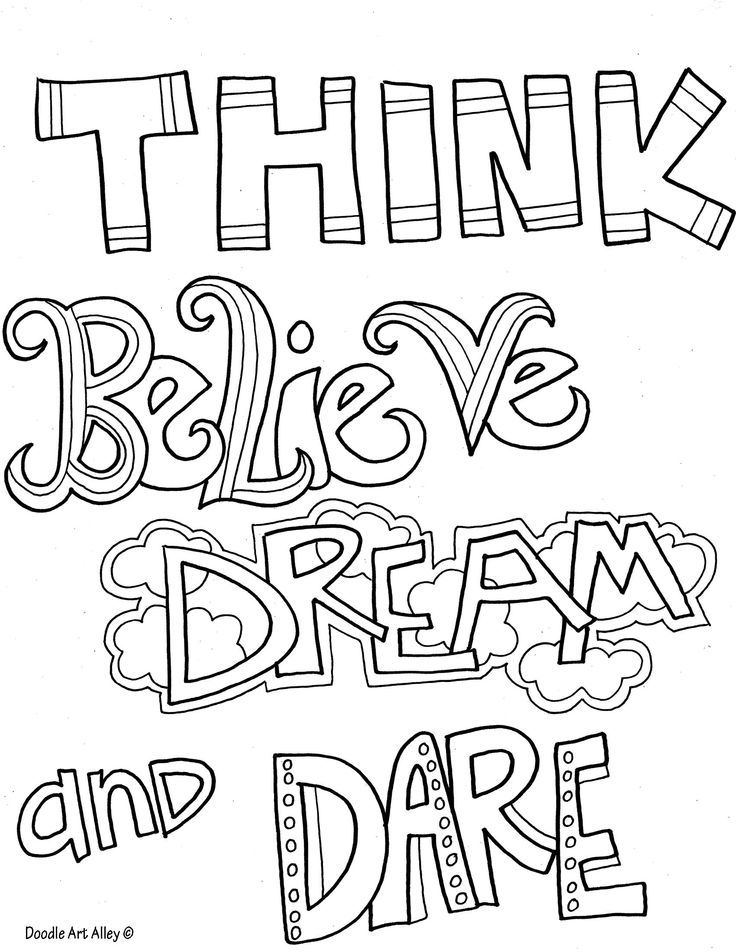 THINK
BeLieVe
DREAM
and DARE
Doodle Art Alley ©